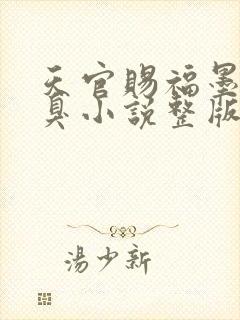 天官賜福墨
臭小説整版
湯少新